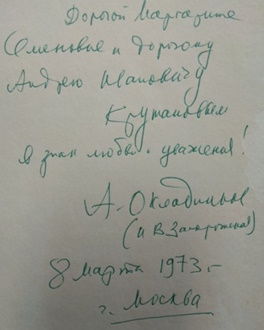 Дорогой Маргарите
Семеновне и дорогому
Андрею Ивановичу
Крушановым
в знак любви и уважения!
А. Окладников
(и В. Запорожская)
8 марта 1973.-
г. Москва